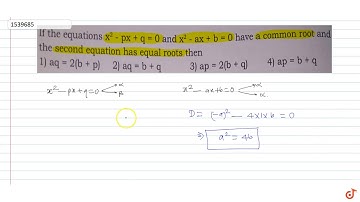 1539685
If the equations x² - px + q = 0 and x² - ax + b = 0 have a common root and
the second equation has equal roots then
1) aq = 2(b + p) 2) aq = b + q 3) ap = 2(b + q) 4) ap = b + q
x² - px + q = 0 < α β x² - ax + b = 0 < α α
D = (-a)² - 4×1×b = 0
⇒ a² = 4b